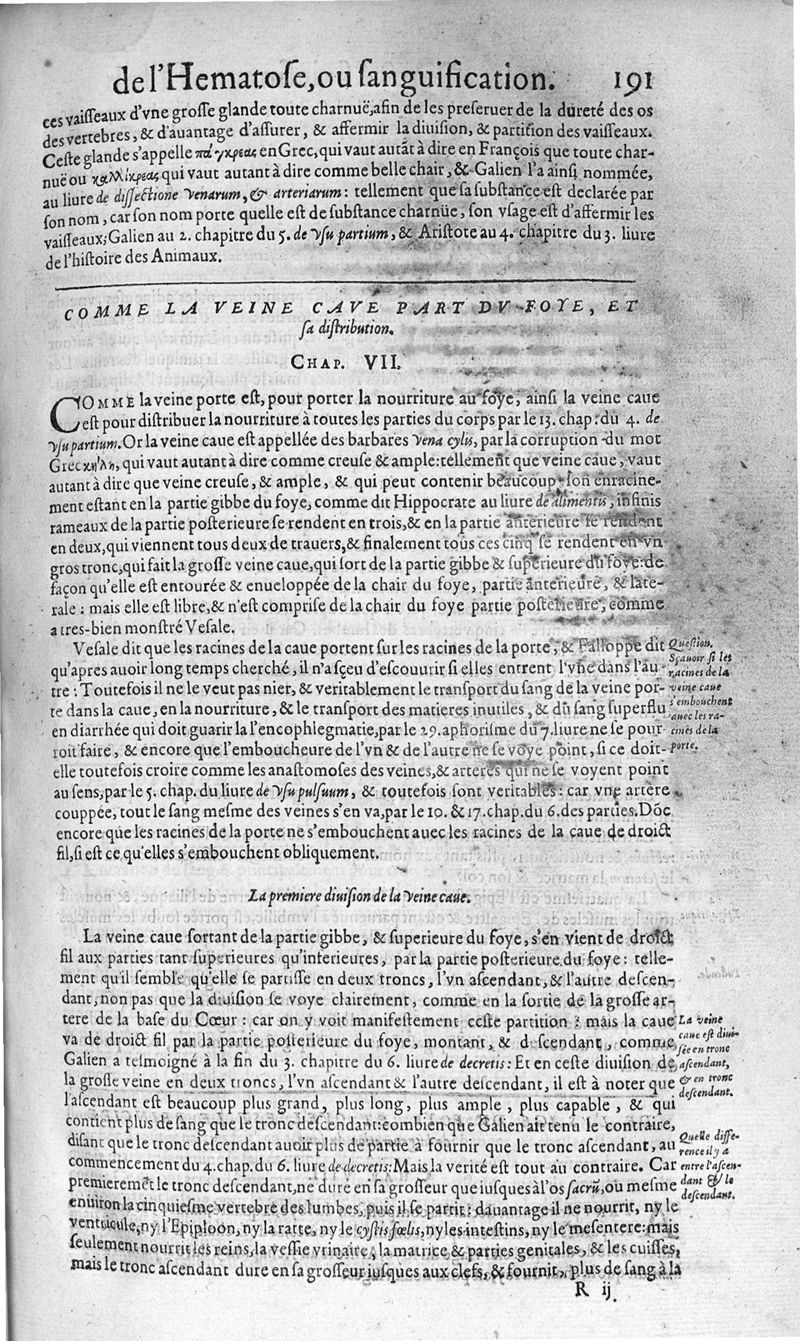 de l'Hematose, ou sanguification. 191
ces vaisseaux d'vne grosse glande toute charnuë, afin de les preseruer de la dureté des os
des vertebres, & d'auantage d'assurer, & affermir la diuision, & partision des vaisseaux.
Ceste glande s'appelle πάγκρεας en Grec, qui vaut autāt à dire en François que toute char-
nuë ou καλλίκρεας qui vaut autant à dire comme belle chair, & Galien l'a ainsi nommée,
au liure de dissectione venarum, & arteriarum : tellement que sa substance est declarée par
son nom, car son nom porte quelle est de substance charnüe, son vsage est d'affermir les
vaisseaux; Galien au 2. chapitre du 5. de vsu partium, & Aristote au 4. chapitre du 3. liure
de l'histoire des Animaux.
COMME LA VEINE CAVE PART DV FOYE, ET
sa distribution.
CHAP. VII.
COMME la veine porte est, pour porter la nourriture au foye, ainsi la veine caue
est pour distribuer la nourriture à toutes les parties du corps par le 13. chap. du 4. de
vsu partium. Or la veine caue est appellée des barbares vena cylis, par la corruption du mot
Grec κήλη, qui vaut autant à dire comme creuse & ample: tellement que veine caue, vaut
autant à dire que veine creuse, & ample, & qui peut contenir beaucoup, son enracine-
ment estant en la partie gibbe du foye, comme dit Hippocrate au liure de alimentis, infinis
rameaux de la partie posterieure se rendent en trois, & en la partie anterieure se rendent
en deux, qui viennent tous deux de trauers, & finalement tous ces cinq se rendent en vn
gros tronc, qui fait la grosse veine caue, qui sort de la partie gibbe & superieure du foye: de
façon qu'elle est entourée & enueloppée de la chair du foye, partie anterieure, & late-
rale : mais elle est libre, & n'est comprise de la chair du foye partie posterieure, comme
a tres-bien monstré Vesale.
Vesale dit que les racines de la caue portent sur les racines de la porte, & Falloppe dit
qu'apres auoir long temps cherché, il n'a sçeu d'escouurir si elles entrent l'vne dans l'au-
tre : Toutefois il ne le veut pas nier, & veritablement le transport du sang de la veine por-
te dans la caue, en la nourriture, & le transport des matieres inutiles, & du sang superflu
en diarrhée qui doit guarir la l'encophlegmatie, par le 29. aphorisme du 7. liure ne se pour-
roit faire, & encore que l'emboucheure de l'vn & de l'autre ne se voye point, si ce doit-
elle toutefois croire comme les anastomoses des veines, & arteres qui ne se voyent point
au sens, par le 5. chap. du liure de vsu pulsuum, & toutefois sont veritables : car vne artere
couppée, tout le sang mesme des veines s'en va, par le 10. & 17. chap. du 6. des parties. Dōc
encore que les racines de la porte ne s'embouchent auec les racines de la caue de droict
fil, si est ce qu'elles s'embouchent obliquement.
Question.
Sçauoir si les
racines de la
veine caue
s'embouchent
auec les ra-
cines de la
porte.
La premiere diuision de la veine caue.
La veine caue sortant de la partie gibbe, & superieure du foye, s'en vient de droict
fil aux parties tant superieures qu'inferieures, par la partie posterieure du foye : telle-
ment qu'il semble qu'elle se partisse en deux troncs, l'vn ascendant, & l'autre descen-
dant, non pas que la diuision se voye clairement, comme en la sortie de la grosse ar-
tere de la base du Cœur : car on y voit manifestement ceste partition : mais la caue
va de droict fil par la partie posterieure du foye, montant, & descendant, comme
Galien a tesmoigné à la fin du 3. chapitre du 6. liure de decretis : Et en ceste diuision de
la grosse veine en deux troncs, l'vn ascendant & l'autre descendant, il est à noter que
l'ascendant est beaucoup plus grand, plus long, plus ample, plus capable, & qui
contient plus de sang que le tronc descendant: combien que Galien ait tenu le contraire,
disant que le tronc descendant auoit plus de partie à fournir que le tronc ascendant, au
commencement du 4. chap. du 6. liure de decretis: Mais la verité est tout au contraire. Car
premieremēt le tronc descendant, ne dure en sa grosseur que iusques à l'os sacrū, ou mesme
enuiron la cinquiesme vertebre des lumbes, puis il se partit : dauantage il ne nourrit, ny le
ventricule, ny l'Epiploon, ny la ratte, ny le cystis fœlis, ny les intestins, ny le mesentere: mais
seulement nourrit les reins, la vessie vrinaire, la matrice & parties genitales, & les cuisses,
mais le tronc ascendant dure en sa grosseur iusques aux clefs, & fournit, plus de sang à la
La veine
caue est diui-
sée en tronc
ascendant,
& en tronc
descendant.
Quelle diffe-
rence il y a
entre l'ascen-
dant & le
descendant.
R ij